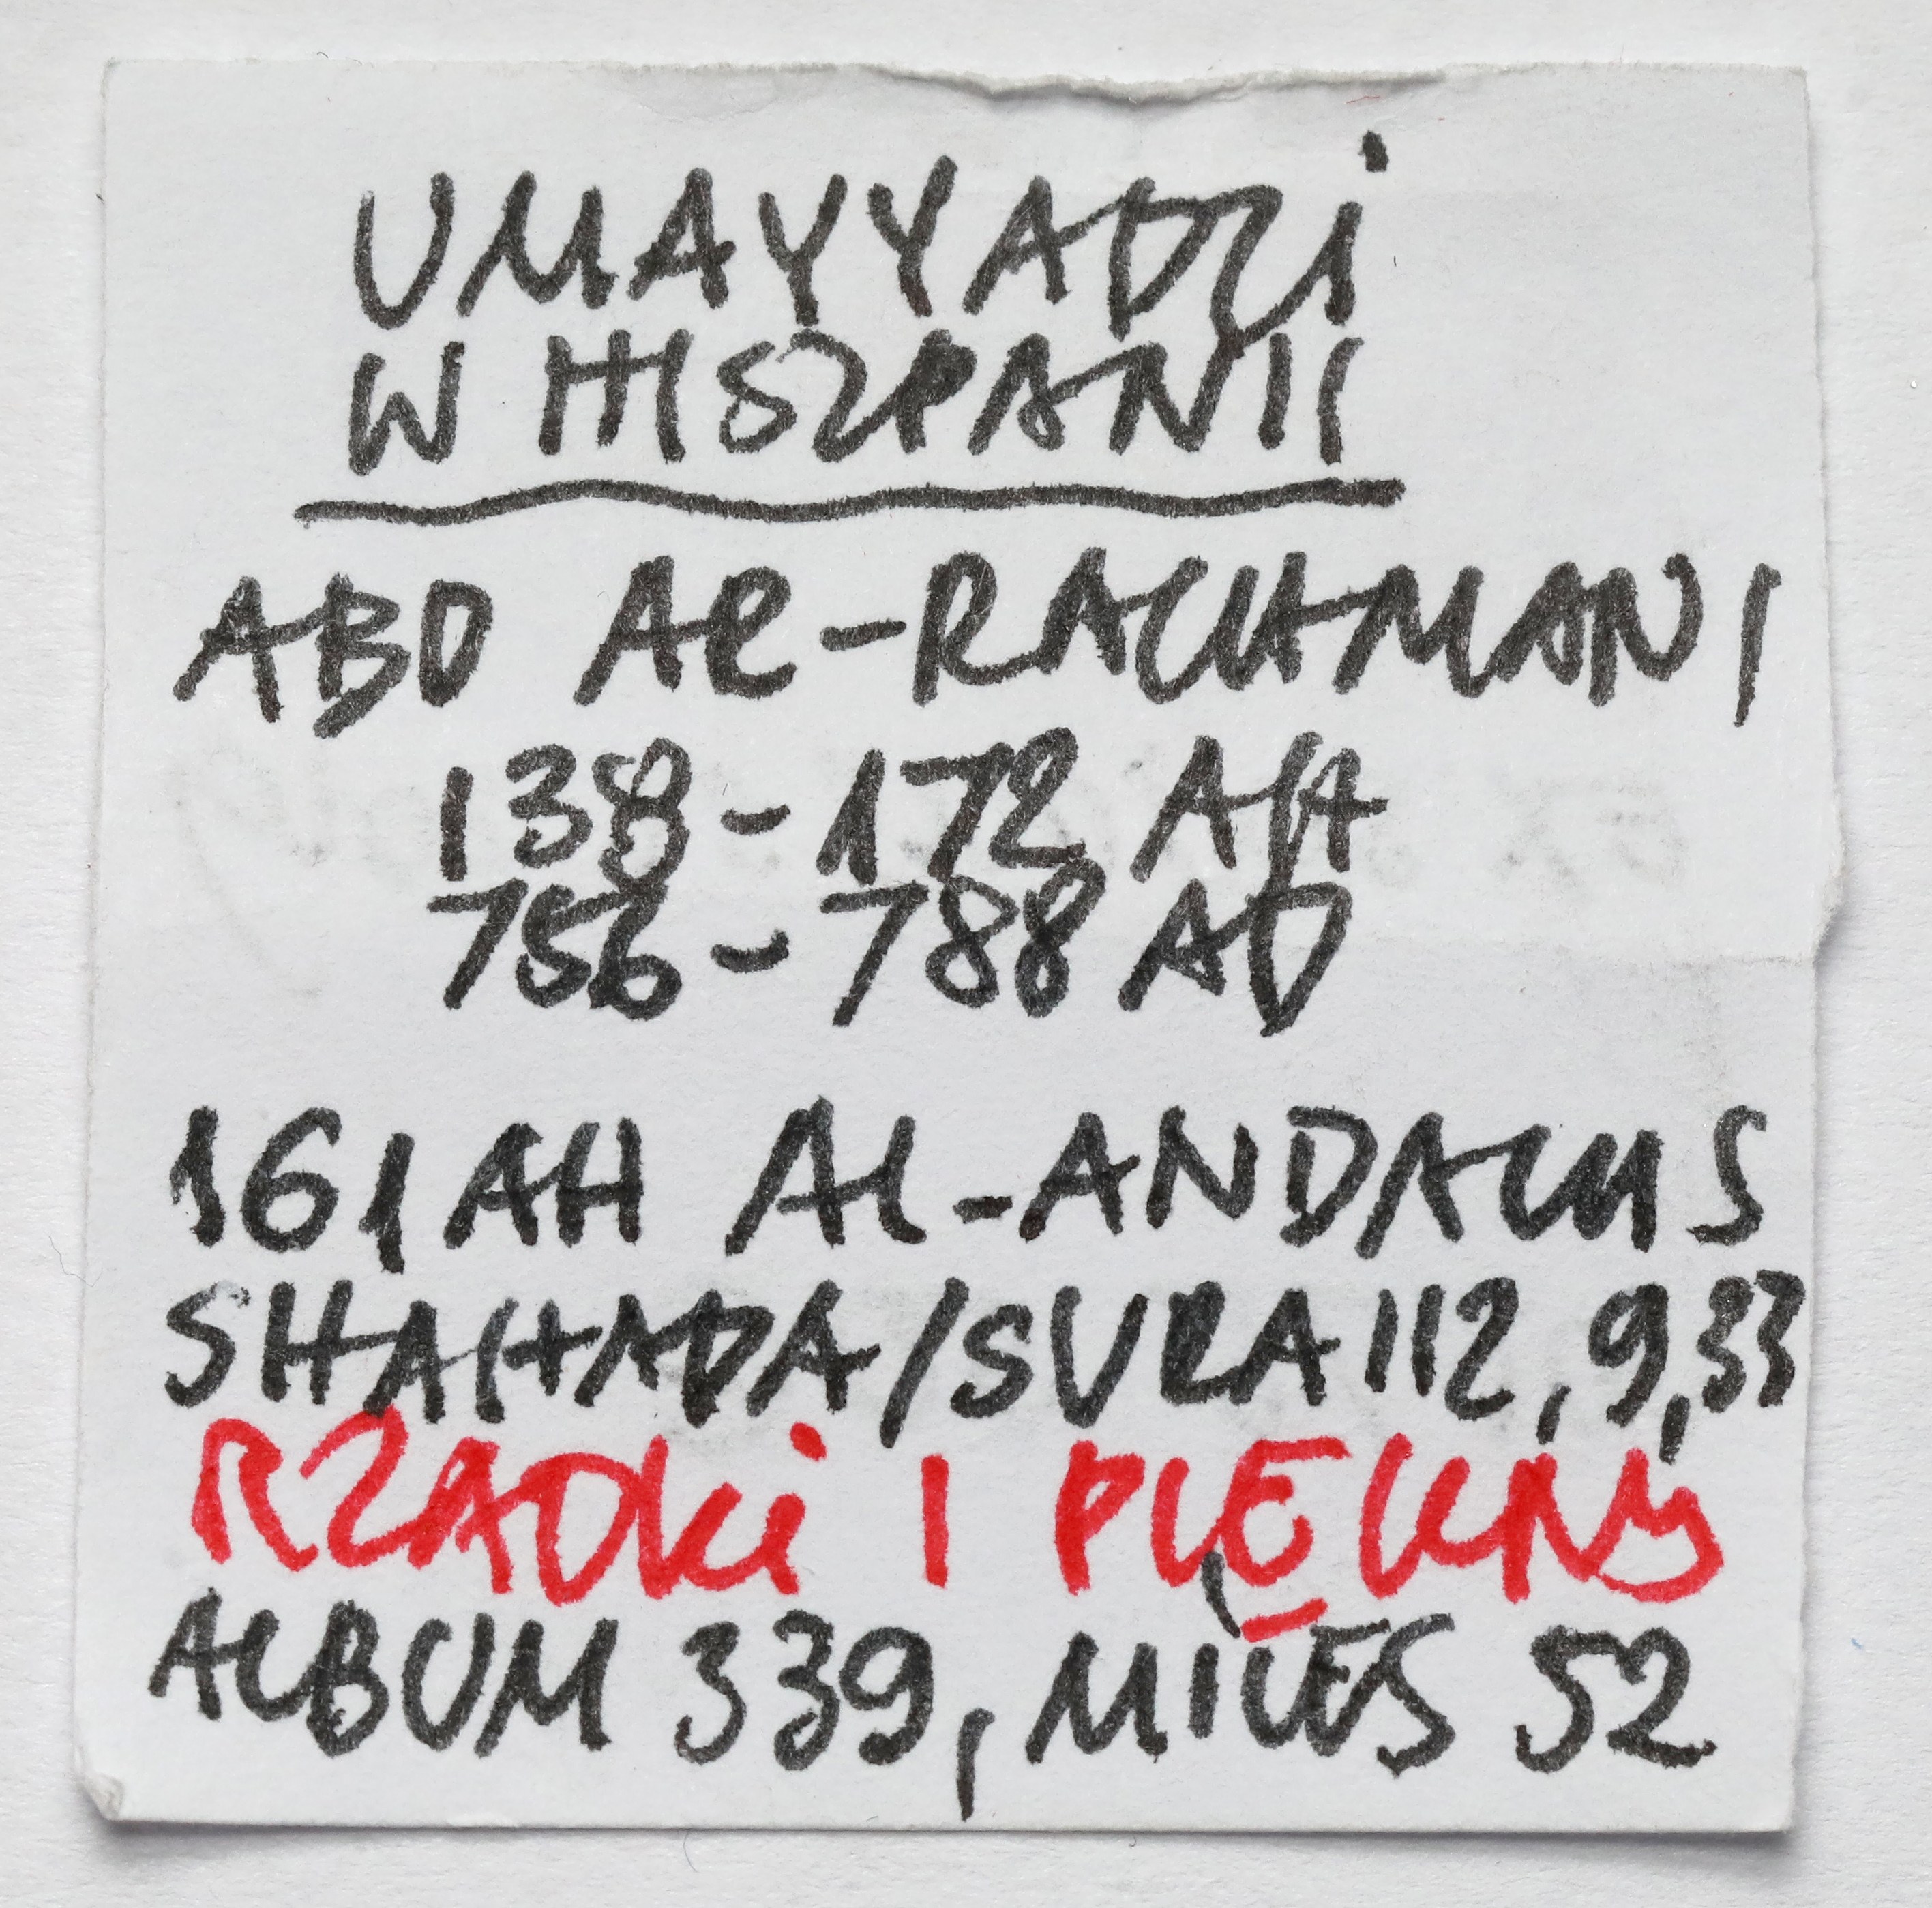 UMAYYADZI
W HISZPANII
ABD AL-RACHMAN I
138-172 AH
756-788 AD
161 AH AL-ANDALUS
SHAHADA/SURA 112, 9,33
RZADKI I PIĘKNY
ALBUM 339, MILES 52